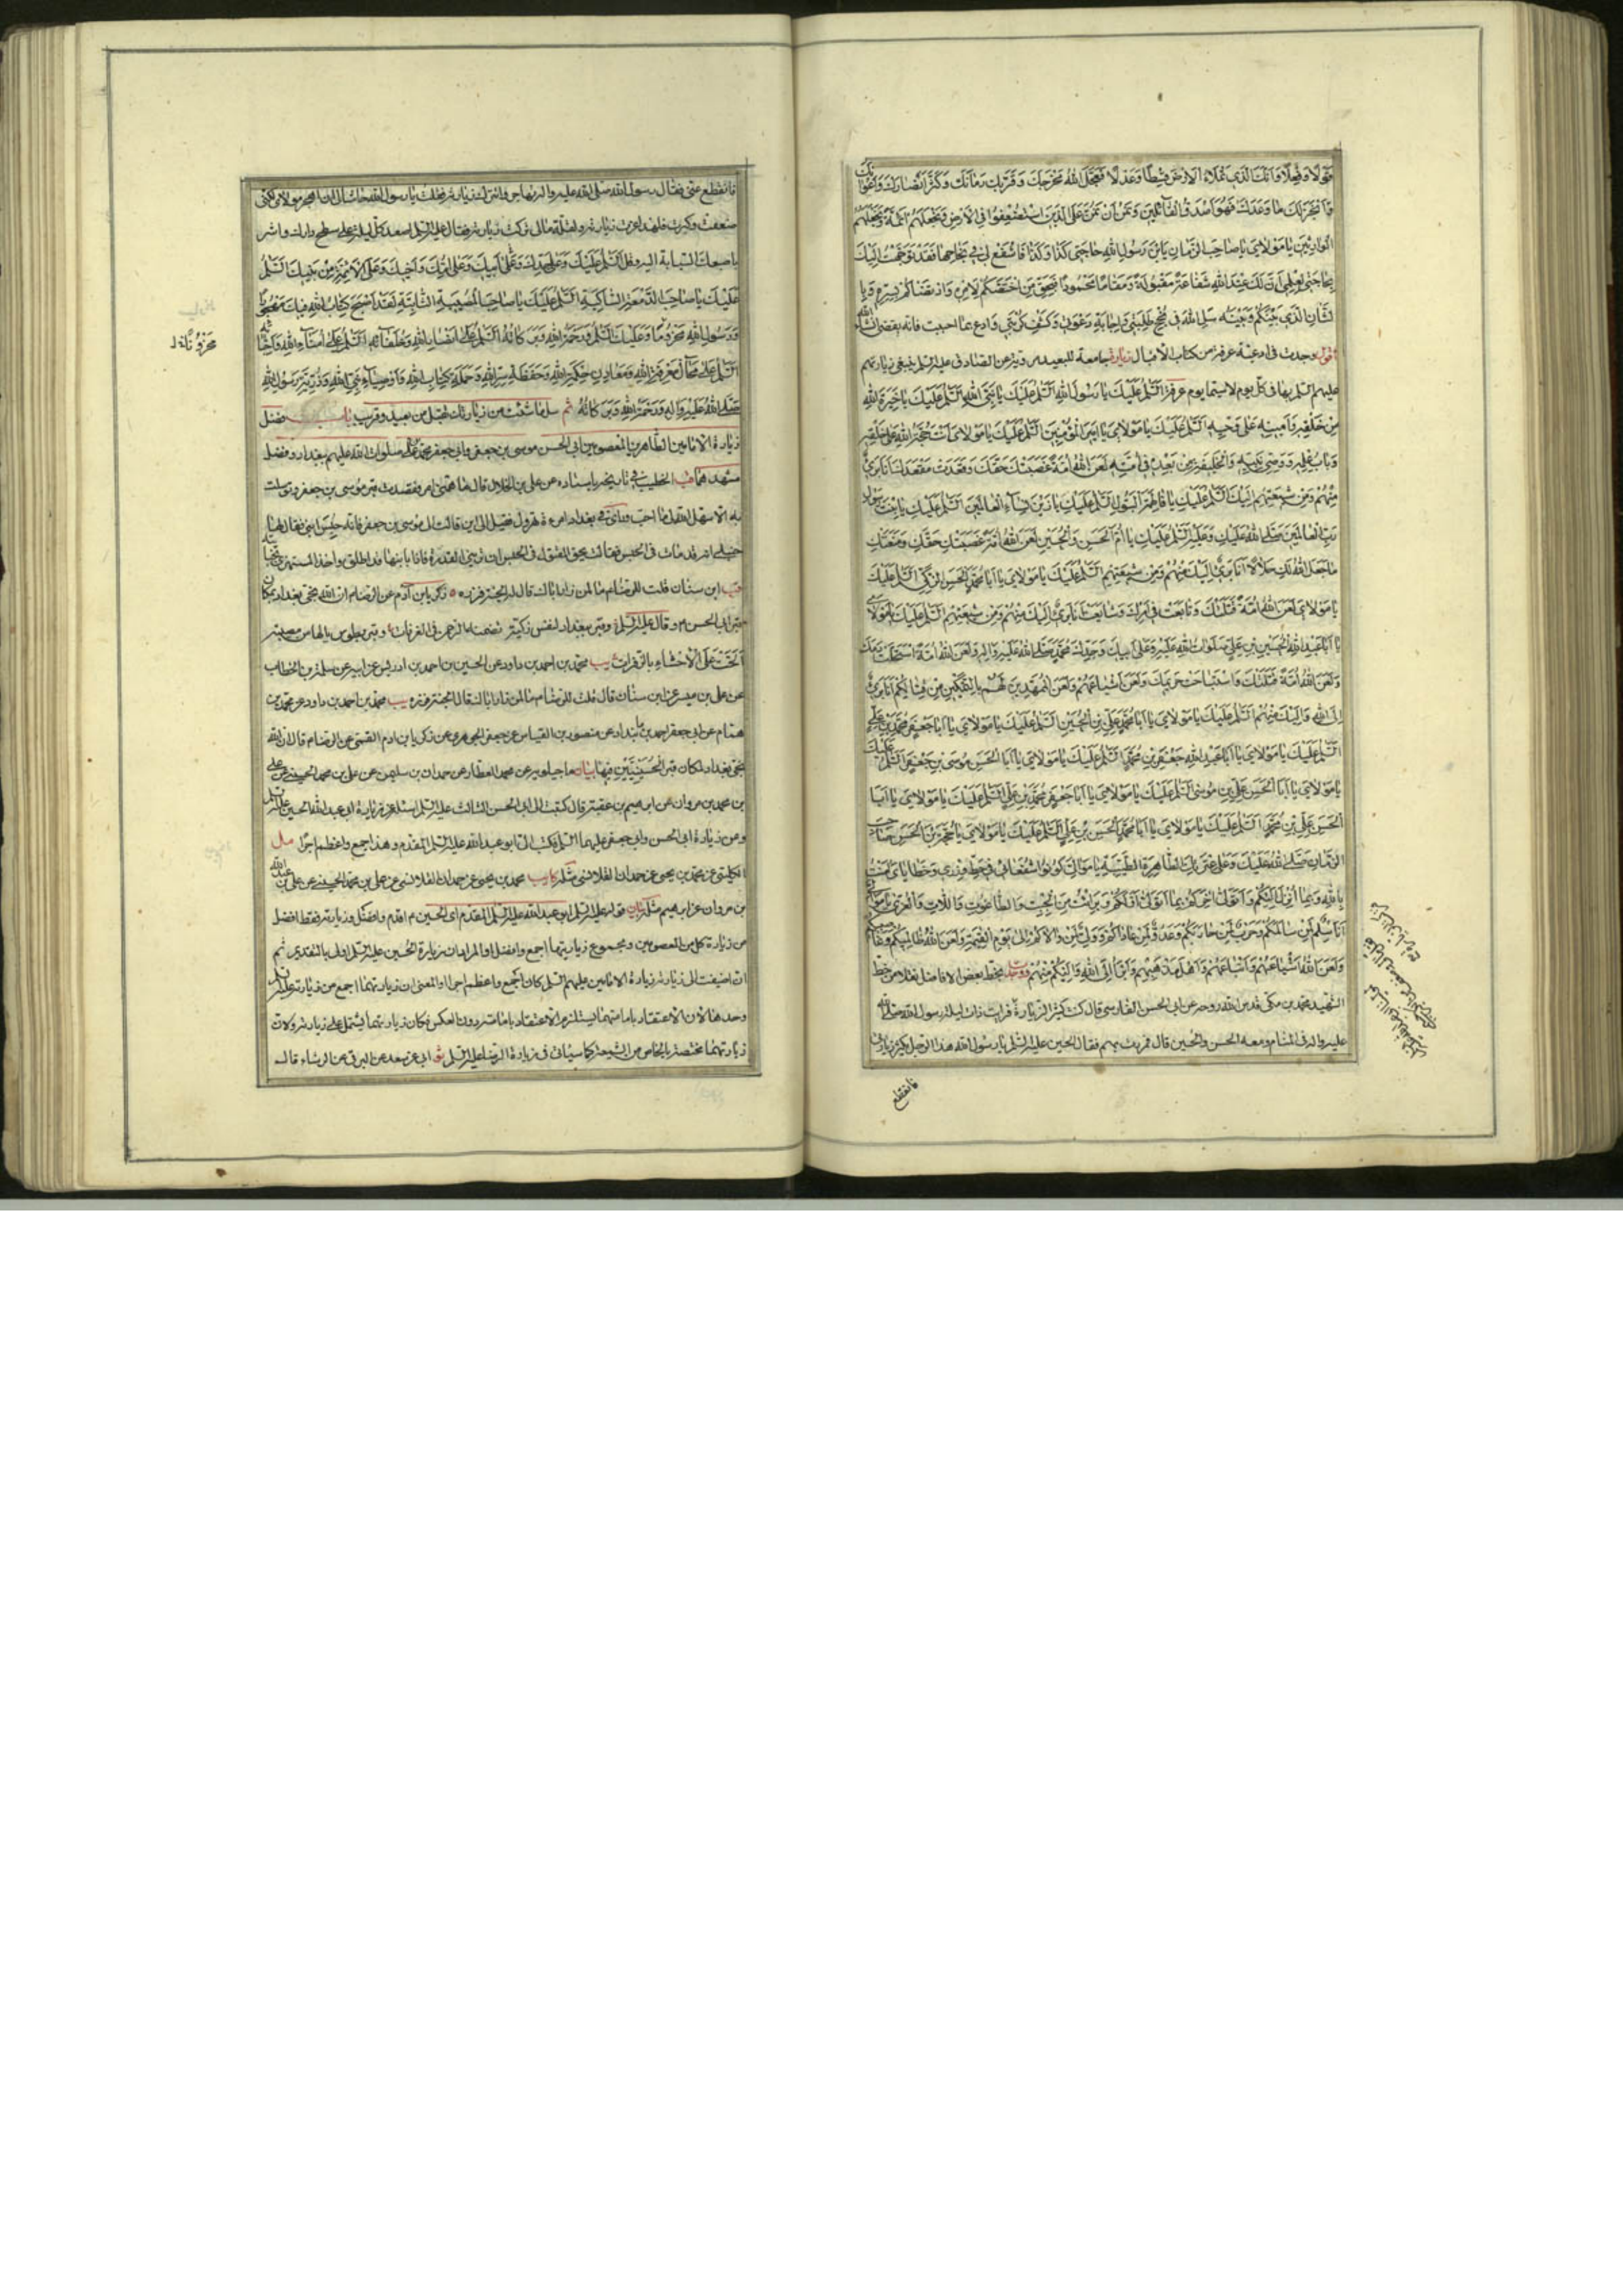 قولا وفعلا وانك الذي تملاء الارض قسطا وعدلا فعجل الله مخرجك وقرب زمانك وكثر انصارك واعوانك
وانجز لك ما وعدك فهو اصدق القائلين ونريد ان نمن على الذين استضعفوا في الارض ونجعلهم ائمة ونجعلهم
الوارثين يا مولاي يا صاحب الزمان يابن رسول الله حاجتي كذا وكذا فاشفع لي في نجاحها فقد توجهت اليك
بحاجتي لعلمي ان لك عند الله شفاعة مقبولة ومقاما محمودا فبحق من اختصكم لامره وارتضاكم لسره وبا
لشان الذي بينكم وبينه سل الله في نجح طلبتي واجابة دعوتي وكشف كربتي وادع بما احببت فانه يقضى انشاء الله
اقول وجدت في ادعية عرفة من كتاب الاقبال زيارة جامعة للبعيد مروية عن الصادق عليه السلم ينبغي زيارتهم
عليهم السلم بها في كل يوم لاسيما يوم عرفة السلم عليك يا رسول الله السلم عليك يا نبي الله السلم عليك يا خيرة الله
من خلقه وامينه على وحيه السلم عليك يا مولاي يا امير المؤمنين السلم عليك يا مولاي انت حجة الله على خلقه
وباب علمه ووصي نبيه والخليفة من بعده في امته لعن الله امة غصبتك حقك وقعدت مقعدك انا بريء
منهم ومن شيعتهم اليك السلم عليك يا فاطمة البتول السلم عليك يا زين نساء العالمين السلم عليك يا بنت رسول
رب العالمين صلى الله عليك وعليه السلم عليك يا ام الحسن والحسين لعن الله امة غصبتك حقك ومنعتك
ما جعل الله لك حلالا انا بريء اليك منهم ومن شيعتهم السلم عليك يا مولاي يا ابا محمد الحسن الزكي السلم عليك
يا مولاي لعن الله امة قتلتك وبايعت في امرك وشايعت انا بريء اليك منهم ومن شيعتهم السلم عليك يا مولاي
يا ابا عبد الله الحسين بن علي صلوات الله عليه وعلى ابيك وجدك محمد صلى الله عليه واله ولعن الله امة استحلت دمك
ولعن الله امة قتلتك واستباحت حريمك ولعن اشياعهم ولعن الممهدين لهم بالتمكين من قتالكم انا بريء
الى الله واليك منهم السلم عليك يا مولاي يا ابا محمد علي بن الحسين السلم عليك يا مولاي يا ابا جعفر محمد بن علي
السلم عليك يا مولاي يا ابا عبد الله جعفر بن محمد السلم عليك يا مولاي يا ابا الحسن موسى بن جعفر السلم عليك
يا مولاي يا ابا الحسن علي بن موسى السلم عليك يا مولاي يا ابا جعفر محمد بن علي السلم عليك يا مولاي يا ابا
الحسن علي بن محمد السلم عليك يا مولاي يا ابا محمد الحسن بن علي السلم عليك يا مولاي يا محمد بن الحسن صاحب
الزمان صلى الله عليك وعلى عترتك الطاهرة الطيبة يا موالي كونوا شفعائي في حط وزري وخطاياي امنت
بالله وبما انزل اليكم واتولى اخركم بما اتولى اولكم وبرئت من الجبت والطاغوت واللات والعزى يا موالي
انا سلم لمن سالمكم وحرب لمن حاربكم وعدو لمن عاداكم وولي لمن والاكم الى يوم القيمة ولعن الله ظالميكم وغاصبيكم
ولعن الله اشياعهم واتباعهم واهل مذهبهم وابرأ الى الله واليكم منهم وجدت بخط بعض الافاضل نقلا من خط
الشهيد محمد بن مكي قدس الله روحه عن ابي الحسن الفارسي قال كنت كثير الزيارة فرايت ذات ليلة رسول الله صلى الله
عليه واله في المنام ومعه الحسن والحسين قال فمررت بهم فقال الحسين عليه السلم يا رسول الله هذا الرجل يكثر زيارتي
فانقطع
فانقطع عني فقال رسول الله صلى الله عليه واله تهاجر وانت زيارته فقلت يا رسول الله حاشا لي ان اهجر مولاي لكني
ضعفت وكبرت فلهذا عزت زيارته ولقلة مالي تركت زيارته فقال عليه السلم اصعد كل ليلة على سطح دارك واشر
باصبعك السبابة اليه وقل السلم عليك وعلى جدك وعلى ابيك وعلى امك واخيك وعلى الائمة من بنيك السلم
عليك يا صاحب الدمعة الساكبة السلم عليك يا صاحب المصيبة الثابتة لقد اصبح كتاب الله فيك مهجورا
ورسول الله محزوما وعليك السلم ورحمة الله وبركاته السلم على انصار الله وخلفائه السلم على امناء الله واحبائه
السلم على محال معرفة الله ومعادن حكمة الله وحفظة سر الله وحملة كتاب الله واوصياء نبي الله وذرية رسول الله
صلى الله عليه واله ورحمة الله وبركاته ثم سل ما شئت من زيارتك تقبل من بعيد وقريب باب فضل
زيارة الامامين الطاهرين المعصومين ابي الحسن موسى بن جعفر وابي جعفر محمد بن علي صلوات الله عليهم ببغداد وفضل
مشهدهما قب الخطيب في تاريخه باسناده عن علي بن الخلال قال ما همني امر فقصدت قبر موسى بن جعفر وتوسلت
به الا سهل الله لي ما احب ورئي في بغداد امرءة تهرول فقيل الى اين قالت الى موسى بن جعفر فانه حبس ابني فقال لها
حنبلي انه قد مات في الحبس فقالت بحق المقتول في الحبس ان تريني القدرة فاذا بابنها قد اطلق واخذ ابن المستهزئ بجنايته
قب ابن سنان قلت للرضا م ما لمن زار اباك قال له الجنة فزره ٥ زكريا بن آدم عن الرضا م ان الله نجى بغداد بمكان
قبر ابي الحسن م وقال عليه السلم وقبر ببغداد لنفس زكية تضمنها الرحمن في الغرفات وقبر بطوس يا لها من مصيبة
الحت على الاحشاء بالزفرات يب محمد بن احمد بن داود عن الحسين بن احمد بن ادريس عن ابيه عن سلمة بن الخطاب
عن علي بن ميسر عن ابن سنان قال قلت للرضا م ما لمن زار اباك قال الجنة فزره يب محمد بن احمد بن داود عن محمد بن
همام عن ابي جعفر احمد بن بندار عن منصور بن العباس عن جعفر الجوهري عن زكريا بن ادم القمي عن الرضا م قال ان الله
نجى بغداد لمكان قبر الحسينيين فيها بيان ماجيلويه عن محمد العطار عن حمدان بن سليمن عن علي بن محمد الحضيني عن علي
بن محمد بن مروان عن ابرهيم بن عقبة قال كتبت الى ابي الحسن الثالث عليه السلم اسئله عن زيارة ابي عبد الله الحسين عليه السلم
ومن زيارة ابي الحسن وابي جعفر عليهما السلم فكتب الي ابو عبد الله عليه السلم المقدم وهذا اجمع واعظم اجرا مل
الكليني عن محمد بن يحيى عن حمدان القلانسي مثله كا يب محمد بن يحيى عن حمدان القلانسي عن علي بن محمد الحضيني عن علي بن عبد الله
بن مروان عن ابرهيم مثله بيان قوله عليه السلم ابو عبد الله عليه السلم المقدم اي الحسين م اقدم وافضل وزيارته فقط افضل
من زيارة كل من المعصومين ومجموع زيارتهما اجمع وافضل او المراد ان زيارة الحسين عليه السلم اولى بالتقديم ثم
ان اضيفت الى زيارته زيارة الامامين عليهم السلم كان اجمع واعظم اجرا او المعنى ان زيارتهما اجمع من زيارته عليه السلم
وحدها لان الاعتقاد بامامتهما يستلزم الاعتقاد بامامته دون العكس فكان زيارتهما يشتمل على زيارته ولان
زيارتهما مختصة بالخواص من الشيعة كما سيأتي في زيارة الرضا عليه السلم ثو ابي عن سعد عن البرقي عن الوشاء قال
محزونا ظ